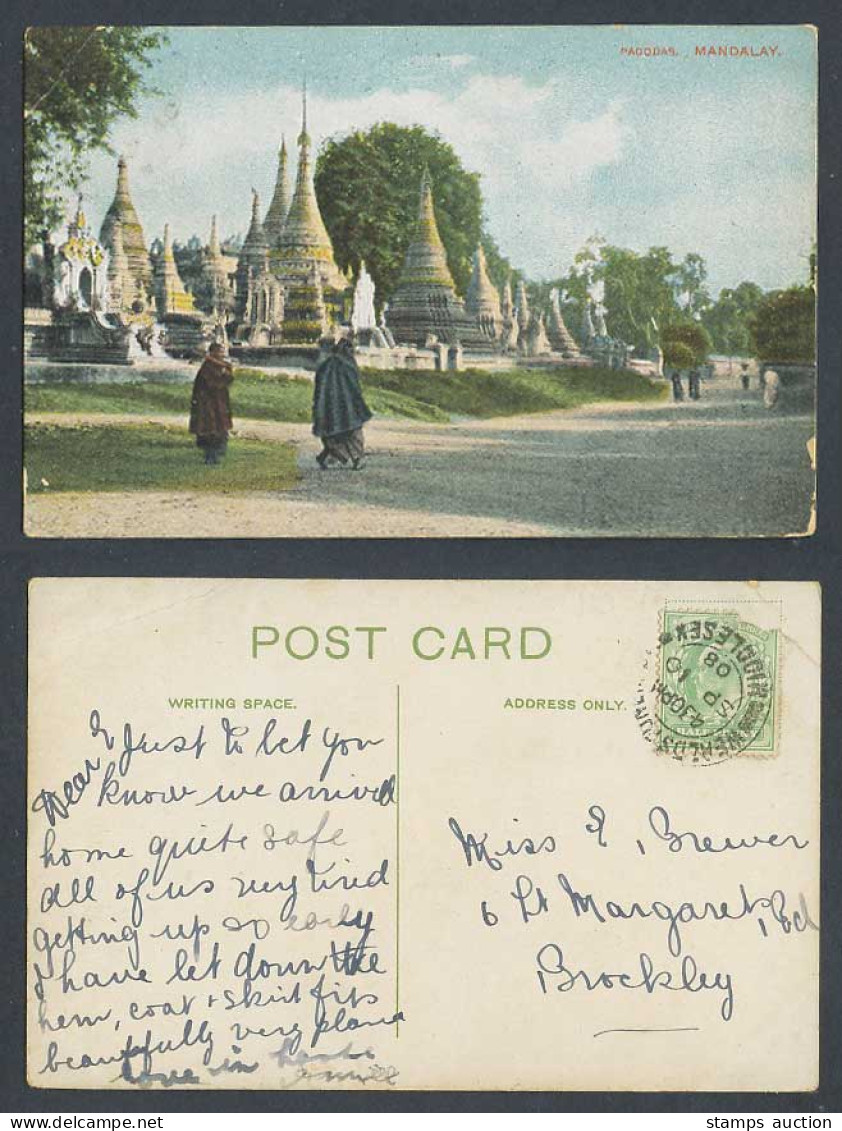 PAGODAS. MANDALAY.
POST CARD
WRITING SPACE.
ADDRESS ONLY.
MIDDLESEX
4.30PM
10
08
Dear E Just to let you
know we arrived
home quite safe
all of us very tired
getting up so early
I have let down the
hem, coat & skirt fits
beautifully very
love in haste
Miss E. Brewer
6 St Margarets Rd
Brockley
stamps auction